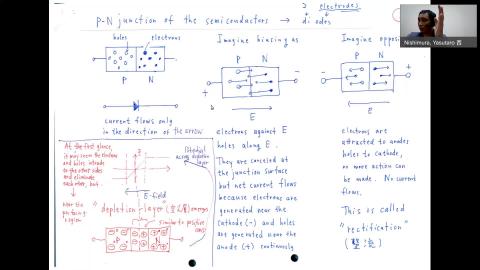 2 electrodes
P-N junction of the semiconductors → diodes
Nishimura, Yasutaro 西
holes
electrons
P N
current flows only
in the direction of the arrow
Imagine biasing as
+ P N -
E
electrons against E
holes along E.
They are canceled at
the junction surface
but net current flows
because electrons are
generated near the
cathode (-) and holes
are generated near the
anode (+) continuously
Imagine opposi
- P N +
E
electrons are
attracted to anodes
holes to cathode,
no more action can
be made. No current
flows.
This is called
"rectification"
(整流)
At the first glance,
it may seem the electrons
and holes intrude
to the other sides
and eliminate
each other, but
Near the
junction
region
Potential
across depletion
layer
E-field
"depletion-layer"
emerges
similar to positive
ions
P N